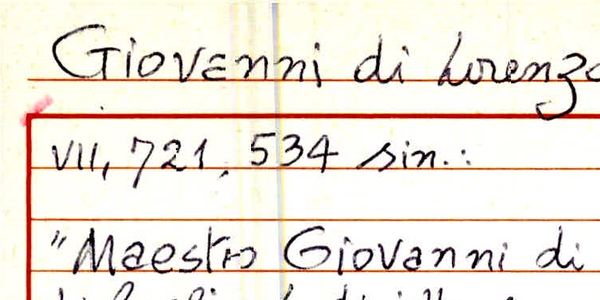 Giovanni di Lorenzo
VII, 721, 534 sin.:
"Maestro Giovanni di